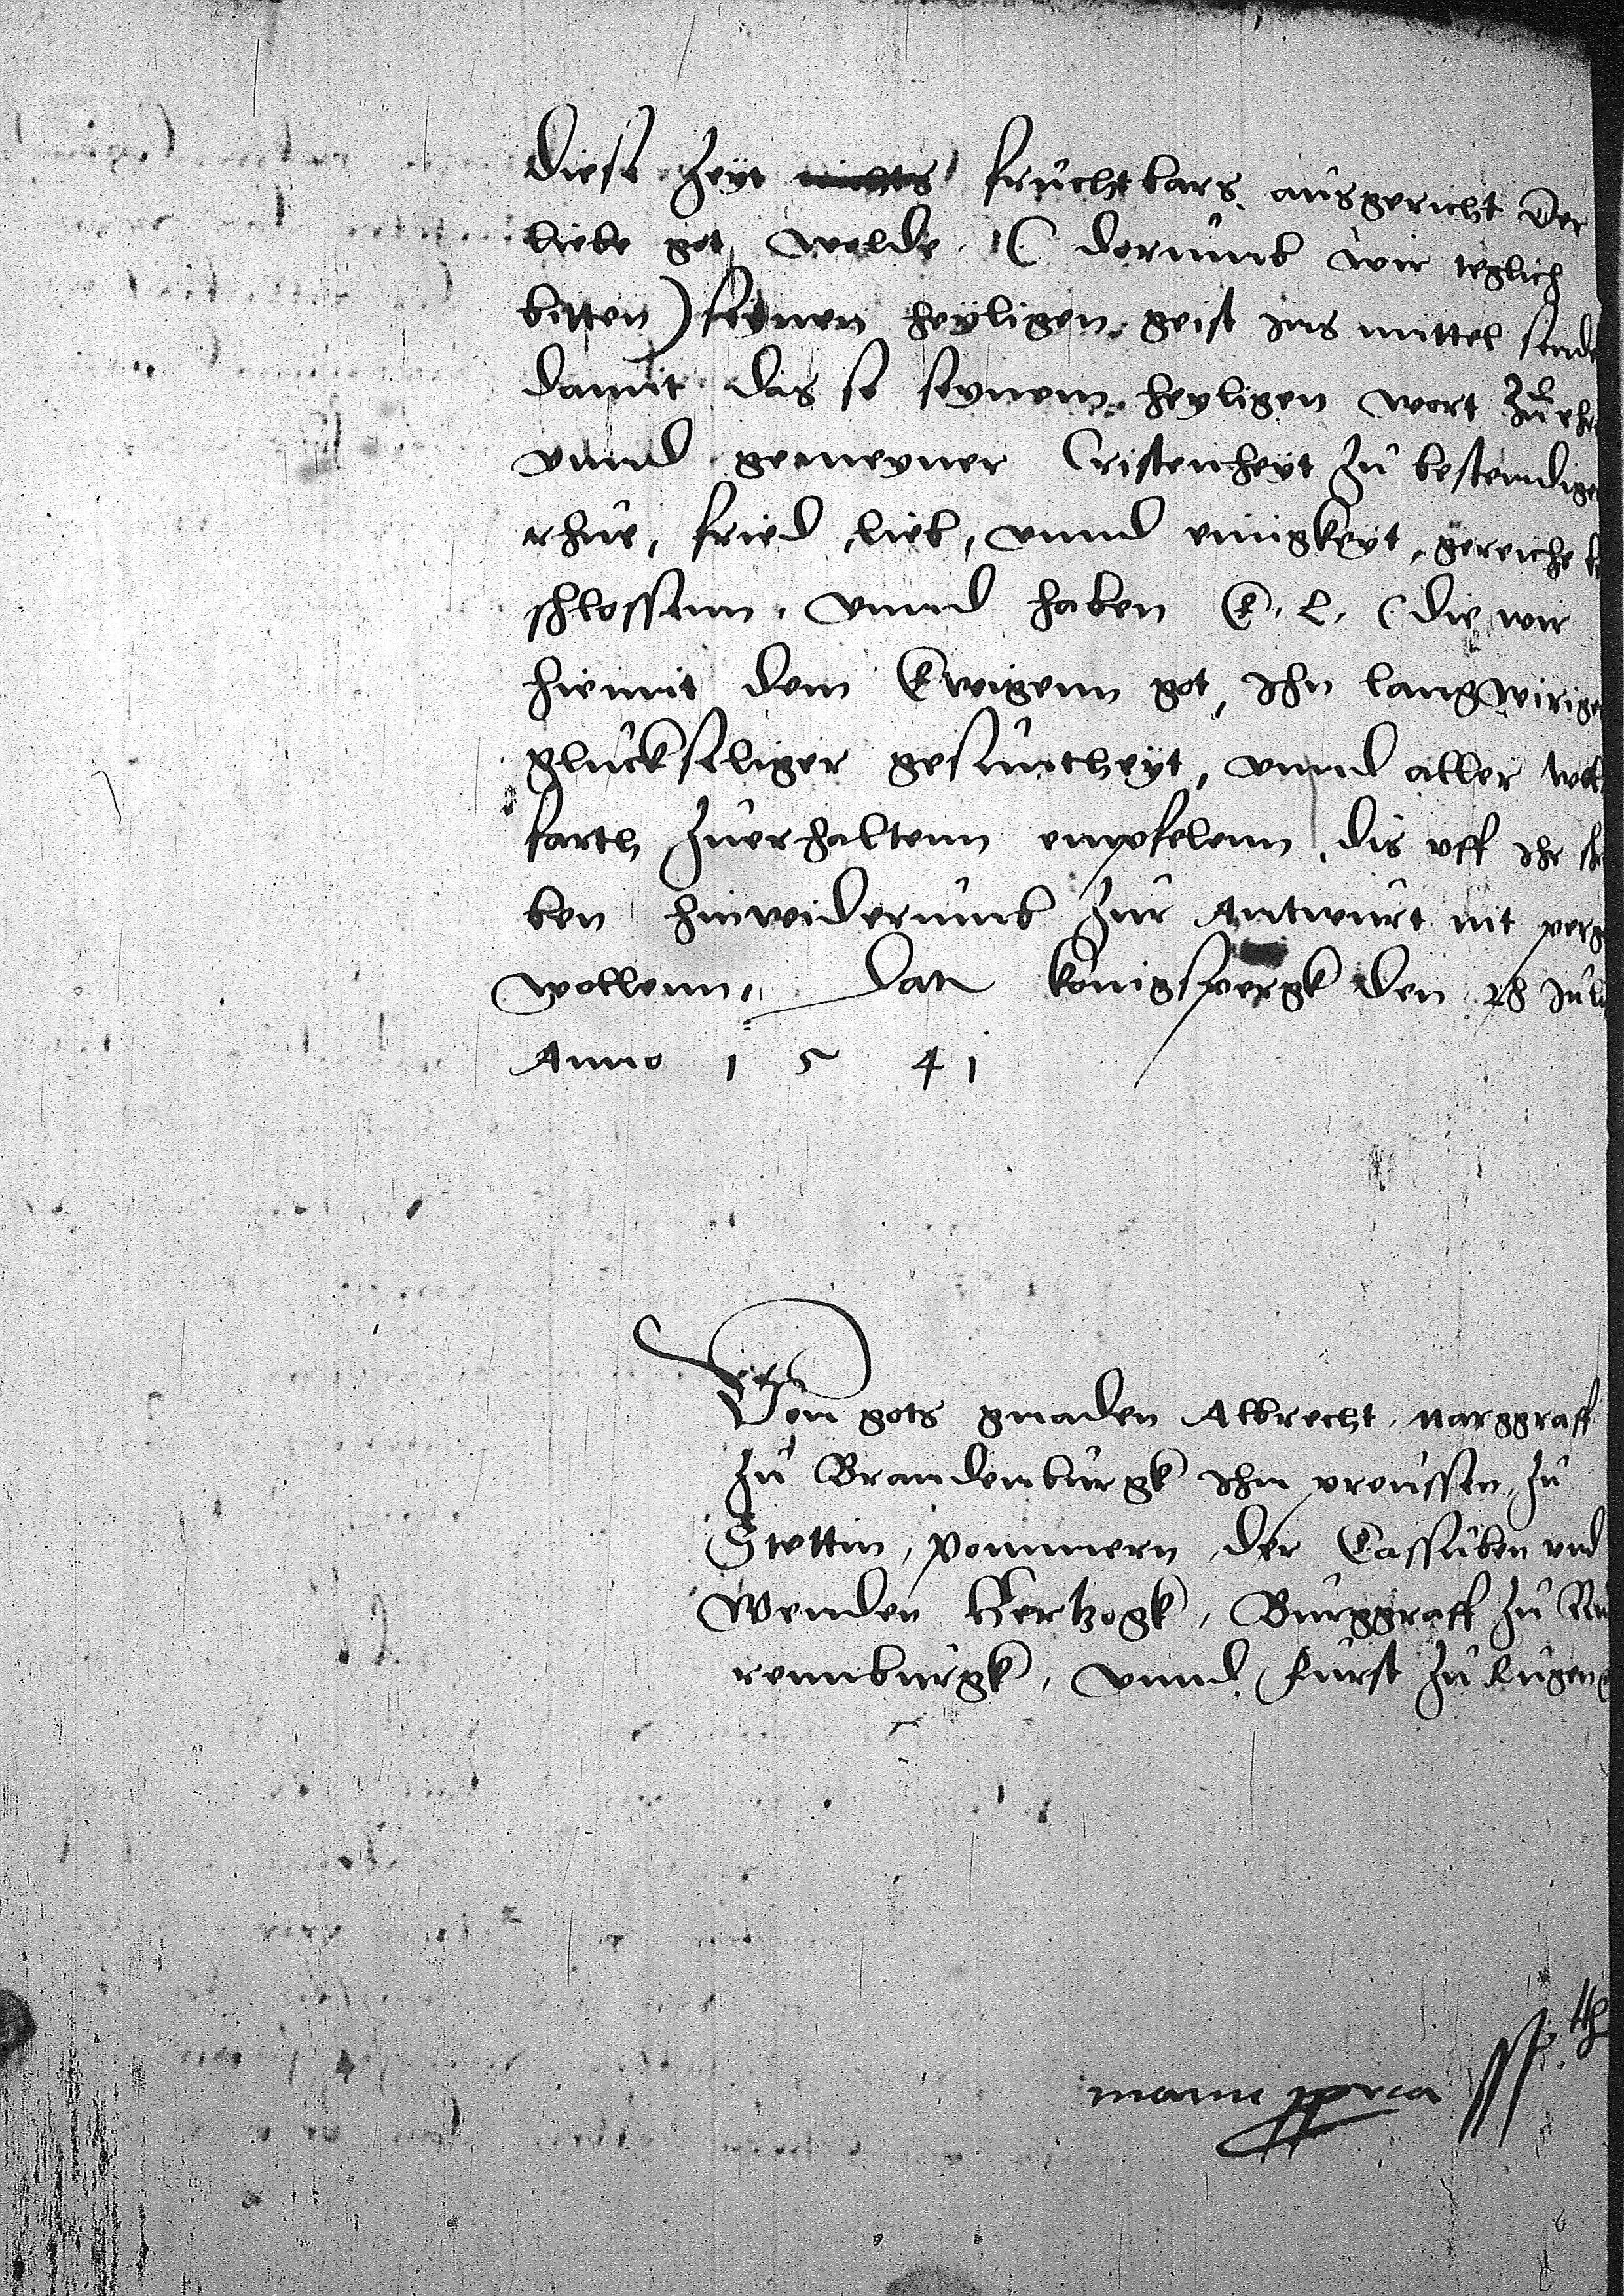 diese Zeyt nichts fruchtbars ausgericht der
liebe got, wolde (dorumb wir teglich
bitten) seinen heyligen geist ins mittel sende
damit das se seynem heyligen wort zu ehr
vnnd gemeyner Cristenheyt zu bestendige
rhue, fried, lieb, vnnd einigkeyt, gereiche be
schlossenn, vnnd haben E. L. (die wir
hiemit dem Ewigenn got, Ihn langwirige
gluckseliger gesuntheyt, vnnd aller wol
farth zuerhaltenn empfelenn, dis vff Ihr schr
ben hinwiderumb zur Antwurt nit perg
wollenn, Dat konigspergk den 28 Juli
Anno 1541
Von gots gnaden Albrecht, Marggraff
zu Brandenburgk Ihn preussen, zu
Stettin, Pommern, der Cassuben vnd
Wenden Hertzogk, Burggraff zu Nu
rennburgk, vnnd furst zu Rugen
manu ppria sst